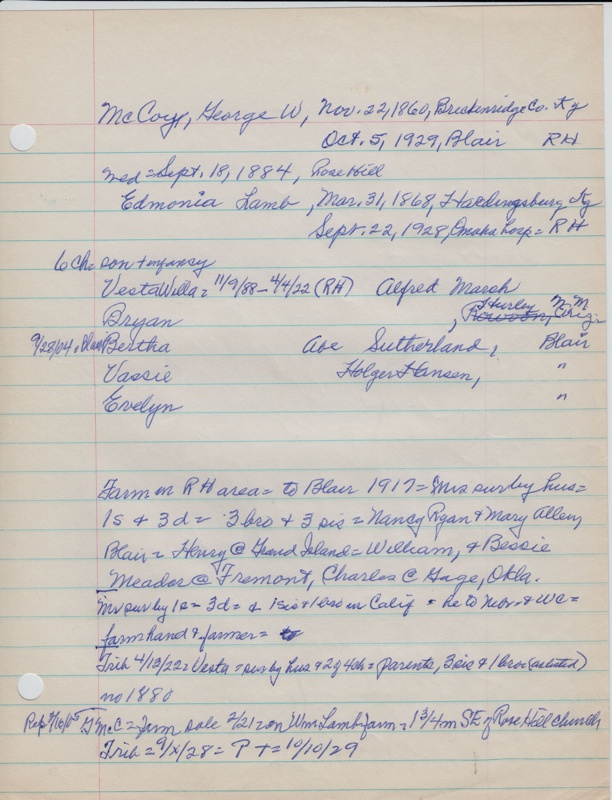 McCoy, George W, Nov. 22, 1860, Breckenridge Co. Ky
Oct. 5, 1929, Blair RH
wed = Sept. 18, 1884, Rose Hill
Edmonia Lamb, Mar. 31, 1868, Hardingsburg, Ky
Sept. 22, 1928, Omaha hosp = RH
6 Ch = son + infancy
Vesta Willa = 11/9/88 - 4/4/22 (RH) Alfred Marsh
Bryan , Hurley N. M.
9/28/04, Blair Bertha Abe Sutherland, Blair
Vassie Holger Hansen, "
Evelyn "
Farm in RH area = to Blair 1917 = Mrs sur by hus =
1s + 3d = 3 bro + 3 sis = Nancy Ryan + Mary Allen,
Blair = Henry @ Grand Island = William, + Bessie
Meador @ Fremont, Charles @ Gage, Okla.
Mr sur by 1s = 3d = + 1sis + 1bro in Calif = he to Nebr + WC =
farmhand + farmer =
Trib 4/13/22 = Vesta = sur by hus + 2g 4b = parents, 3sis + 1bro (as listed)
no 1880
Rep GMcC = farm sale 2/21 = on Wm Lamb farm = 1 3/4 m SE of Rose Hill church
Trib = 9/x/28 = P + = 10/10/29